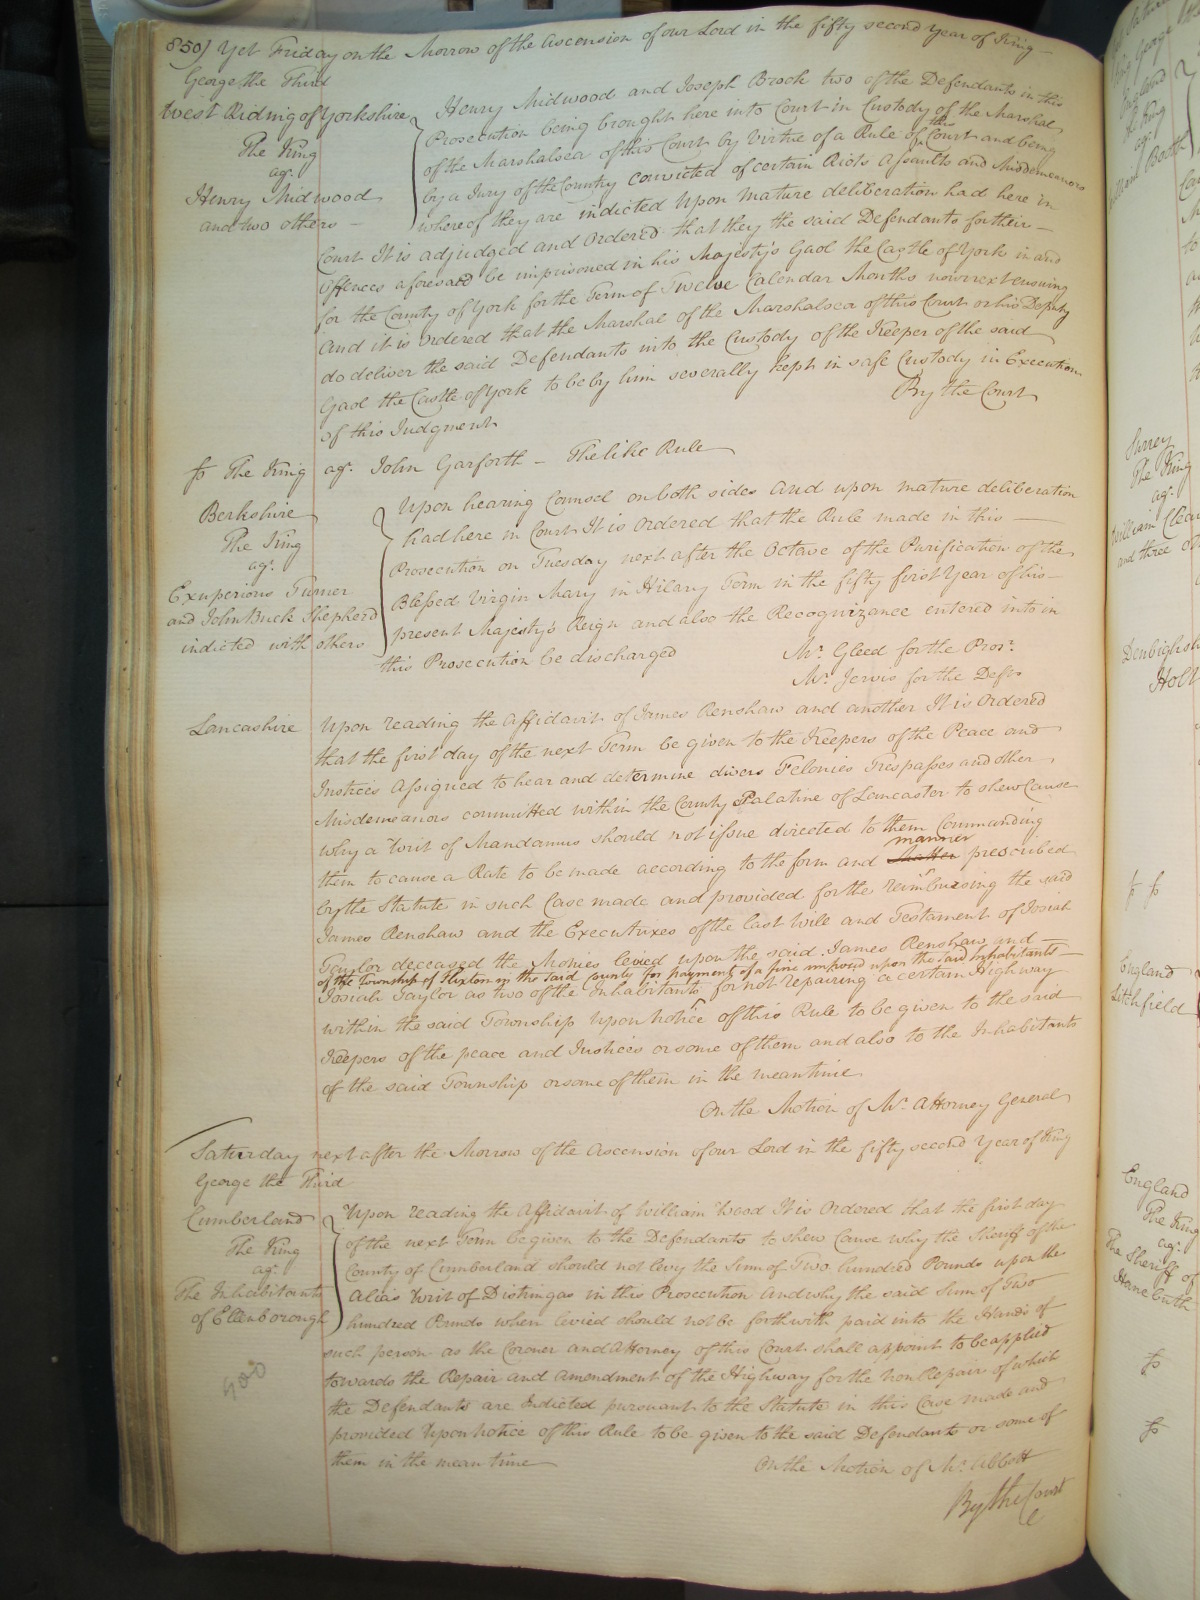 850) Yet Friday on the Morrow of the Ascension of our Lord in the fifty second Year of King
George the Third
West Riding of Yorkshire
The King
agt.
Henry Midwood
and two others
Henry Midwood and Joseph Brook two of the Defendants in this
Prosecution being brought here into Court in Custody of the Marshal
of the Marshalsea of this Court by Virtue of a Rule of this Court and being
by a Jury of the Country convicted of certain Riots Assaults and Misdemeanors
whereof they are indicted Upon mature deliberation had here in
Court It is adjudged and Ordered that they the said Defendants for their
Offences aforesaid be imprisoned in his Majesty's Gaol the Castle of York in and
for the County of York for the Term of Twelve Calendar Months now next ensuing
And it is Ordered that the Marshal of the Marshalsea of this Court or his Deputy
do deliver the said Defendants into the Custody of the Keeper of the said
Gaol the Castle of York to be by him severally kept in safe Custody in Execution
of this Judgment
By the Court
The King agt. John Garforth – The like Rule
Berkshire
The King
agt.
Exuperious Turner
and John Buck Shepherd
indicted with others
Upon hearing Counsel on both sides and upon mature deliberation
had here in Court It is Ordered that the Rule made in this
Prosecution on Tuesday next after the Octave of the Purification of the
Blessed Virgin Mary in Hilary Term in the fifty first Year of his
present Majesty's Reign and also the Recognizance entered into in
this Prosecution be discharged
Mr. Gleed for the Prosr.
Mr. Jervis for the Defts
Lancashire
Upon reading the Affidavit of James Renshaw and another It is Ordered
that the first day of the next Term be given to the Keepers of the Peace and
Justices Assigned to hear and determine divers Felonies Trespasses and other
Misdemeanors committed within the County Palatine of Lancaster to shew Cause
why a Writ of Mandamus should not issue directed to them Commanding
them to cause a Rate to be made according to the form and manner prescribed
by the Statute in such Case made and provided for the reimbursing the said
James Renshaw and the Executrixes of the last Will and Testament of Josiah
Taylor deceased the Monies levied upon the said James Renshaw and
of the Township of Flixton in the said County for payment of a fine imposed upon the said Inhabitants
Josiah Taylor as two of the Inhabitants for not repairing a certain Highway
within the said Township Upon Notice of this Rule to be given to the said
Keepers of the peace and Justices or some of them and also to the Inhabitants
of the said Township or some of them in the mean time
On the Motion of Mr. Attorney General
Saturday next after the Morrow of the Ascension of our Lord in the fifty second Year of King
George the Third
Cumberland
The King
agt.
The Inhabitants
of Ellenborough
Upon reading the Affidavit of William Wood It is Ordered that the first day
of the next Term be given to the Defendants to shew Cause why the Sheriff of the
County of Cumberland should not levy the Sum of Two hundred Pounds upon the
Alias Writ of Distringas in this Prosecution and why the said Sum of Two
hundred Pounds when levied should not be forthwith paid into the Hands of
such person as the Coroner and Attorney of this Court shall appoint to be applied
towards the Repair and Amendment of the Highway for the non Repair of which
the Defendants are Indicted pursuant to the Statute in this Case made and
provided Upon Notice of this Rule to be given to the said Defendants or some of
them in the mean time
On the Motion of Mr. Abbott
By the Court
Surrey
The King
agt.
and three
England
Litchfield
England
The King
agt.
The Sheriff of